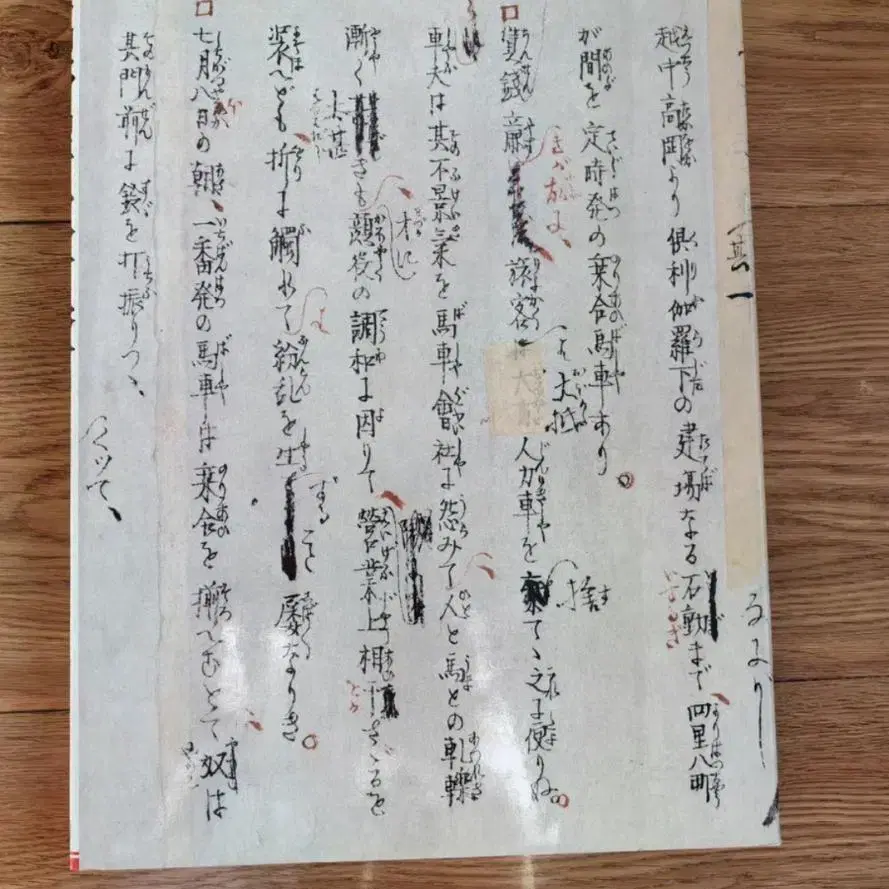 其一
越中高岡より倶利伽羅下の建場なる石動まで、四里八町
が間を定時発の乗合馬車あり。
賃銭の廉きが故に、旅客は大抵人力車を捨てゝ之に便りぬ。
車夫は其不景気を馬車會社に怨みて、人と馬との軋轢
漸く太甚きも、才に顔役の調和に因りて、営業上相干さゞるを
装へども、折に觸れては紛乱を生ずること屡なりき。
七月八日の朝、一番発の馬車は乗合を揃へむとて、奴は
其門前に鈴を打振りつゝ、